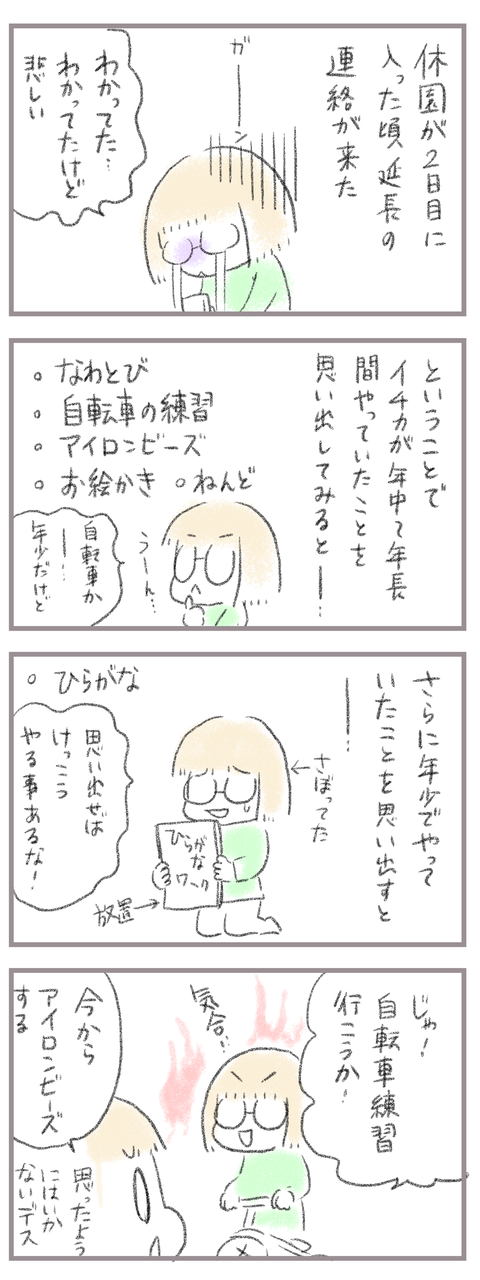 休園が2日目に
入った頃延長の
連絡が来た
ガーン
わかってた…
わかってたけど
悲しい
ということで
イチカが年中て年長
間やっていたことを
思い出してみると―…
。なわとび
。自転車の練習
。アイロンビーズ
。お絵かき 。ねんど
うーん…
自転車か
―…
年少だけど
さらに年少でやって
いたことを思い出すと
―…
。ひらがな
さぼってた
ひらがな
ワーク
放置
思い出せば
けっこう
やる事あるな!
じゃ!
自転車練習
行こうか!
気合!!
今から
アイロンビーズ
する
思ったよう
にはいか
ないデス